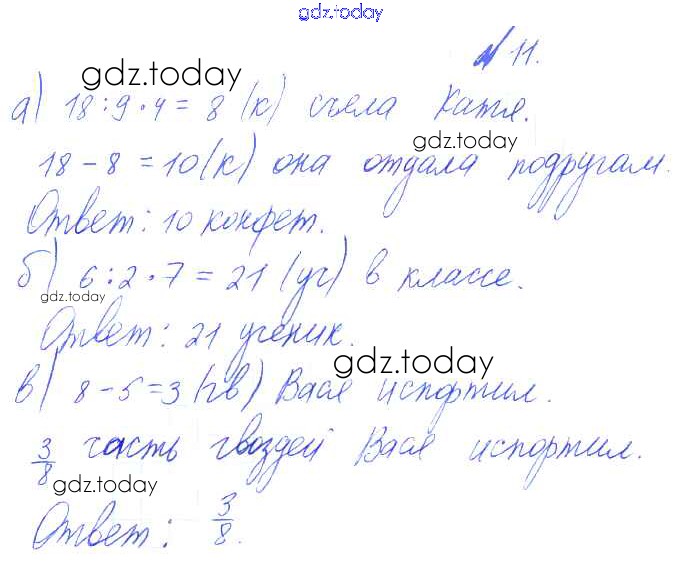 gdz.today
№ 11.
gdz.today
а) 18:9·4 = 8 (к) съела Катя.
gdz.today
18 - 8 = 10 (к) она отдала подругам.
Ответ: 10 конфет.
б) 6:2·7 = 21 (уч) в классе.
gdz.today
Ответ: 21 ученик.
gdz.today
в) 8 - 5 = 3 (гв) Вася испортил.
3/8 часть гвоздей Вася испортил.
gdz.today
Ответ: 3/8.